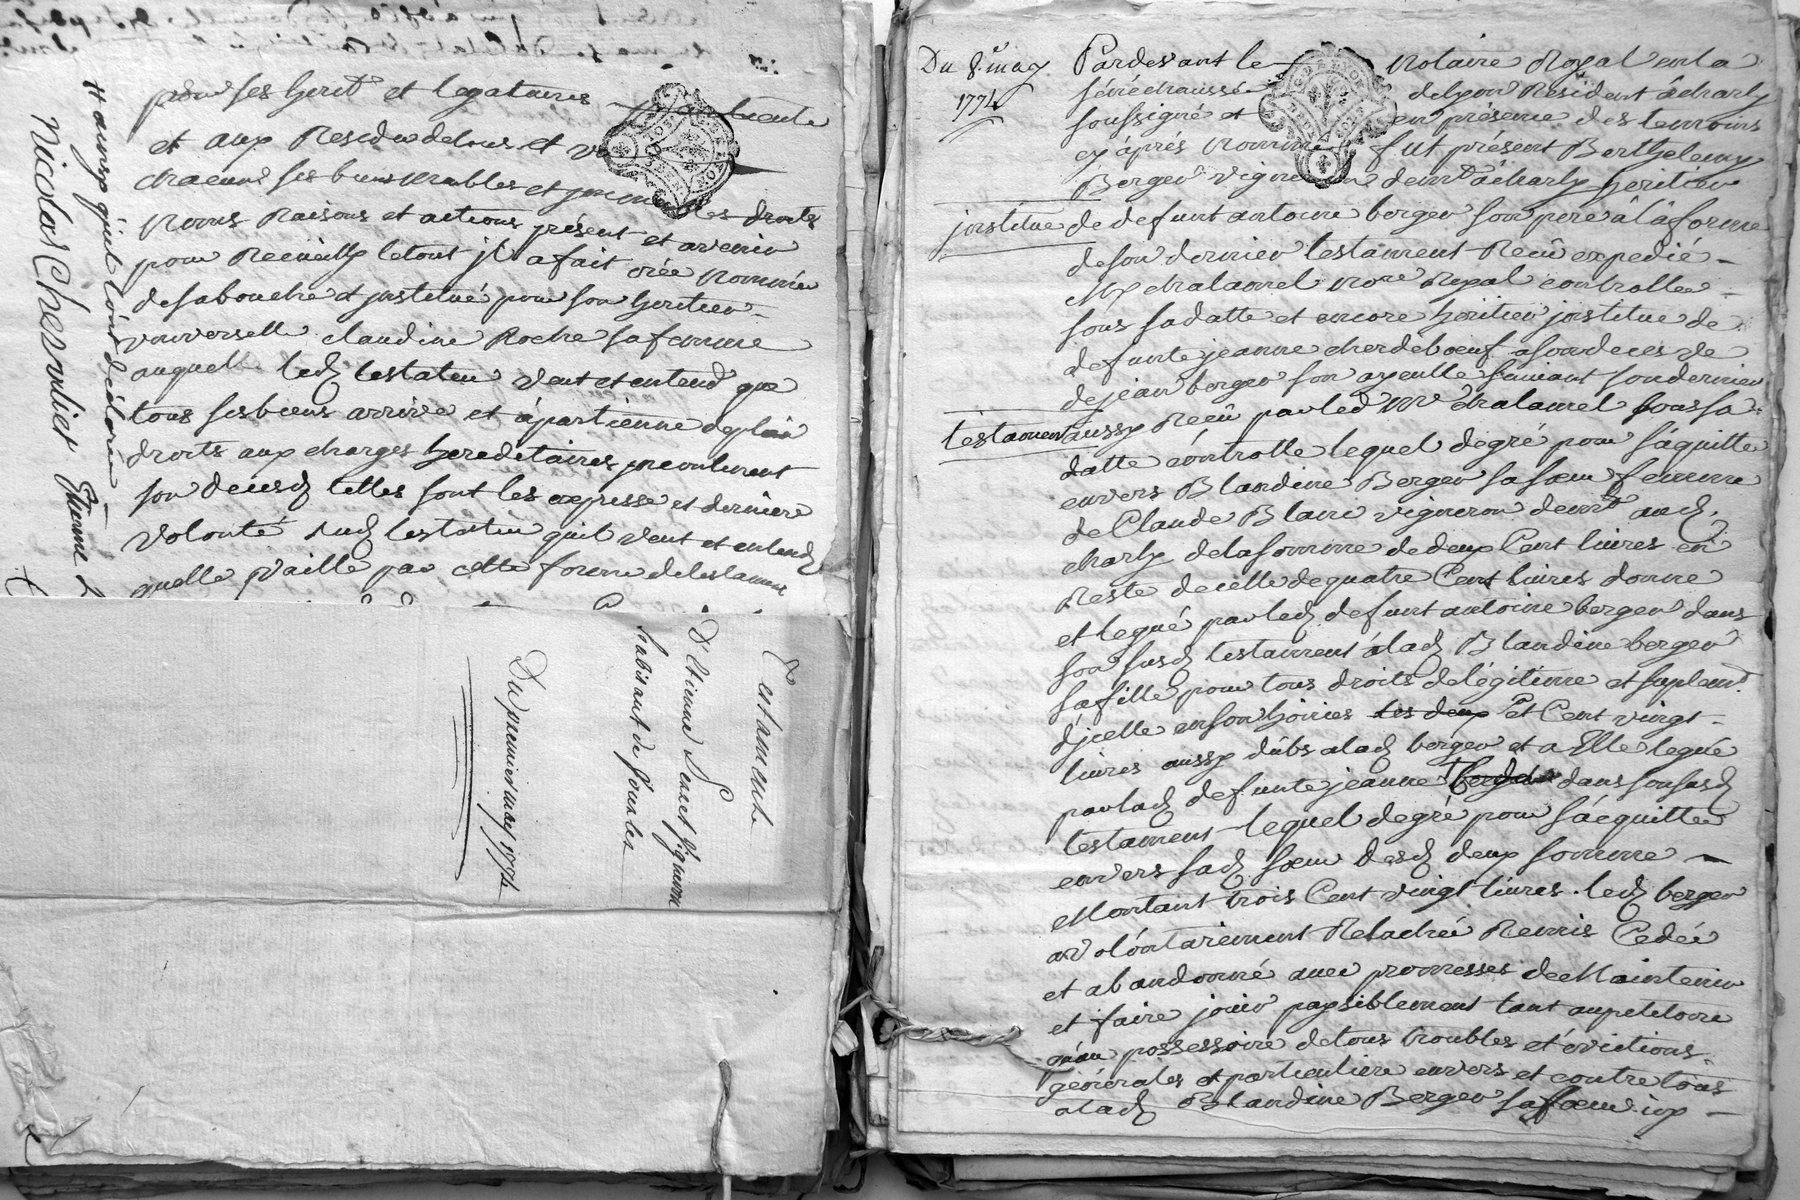 pour ses herit et legataires
et aux Residu de tous et
chacuns ses biens meubles et immeubles droits
Noms Raisons et actions présent et avenir
pour Recüeilly le tout il a fait crée nommée
de sa bouche et jnstitué pour son heritier
universelle claudine Roche sa femme
auquelle led testateur veut et entend que
tous ses biens arrive et ápartienne de plain
droits aux charges hereditaires jncontinent
son deced telles sont les expresse et derniere
volonté dud testateur quil veut et entend
quelle vaille par cette forme de testament
# aussy qu'il l'ont déclarée
Nicolas Chervelier Etienne
Testamente
D'Etienne vigneron
habitant de
Du premier may 1774
Du 8e. may 1774
Pardevant le Notaire Royal en la
sénéchaussé de lyon Résident á charly
soussigné et en présence des temoins
cy áprés Nommé fut présent Berthelemy
Berger vigneron demt á charly heritier
jnstitué de defunt antoine berger son pere á la forme
de son dernier testament Reçû expedié
Me chalamel nore Royal controller
sous sa datte et encore héritier jnstitué de
defunte jeanne cherdeboeuf a son deces ve
de jean berger son ayeulle suivant son dernier
testament aussy Reçû par led Me chalamel sous sa
datte contrôlle lequel de gré pour s'áquitter
envers Blandine Berger sa sœur femme
de Claude Blanc vigneron demt aud.
charly de la somme de deux Cent livres en
Reste de celle de quatre Cent livres donné
et legué par led defunt antoine berger dans
son susd testament á lad Blandine berger
sa fille pour tous droits de légitime et suplemt
d'jcelle en son hoiries les deux et Cent vingt
livres aussy dûbs a lad berger et a Elle legué
par lad defunte jeanne dans son susd
testament lequel de gré pour s'ácquitter
envers sad sœur desd deux somme
Montant trois Cent vingt livres. led berger
a volontairement Relachée Remis Cedée
et abandonné avec promesses de Maintenir
et faire jouir paysiblement tant au petitoire
qu'au possessoire de tous troubles et évictions
générales et particuliere envers et contre tous
a lad Blandine Berger sa sœur icy